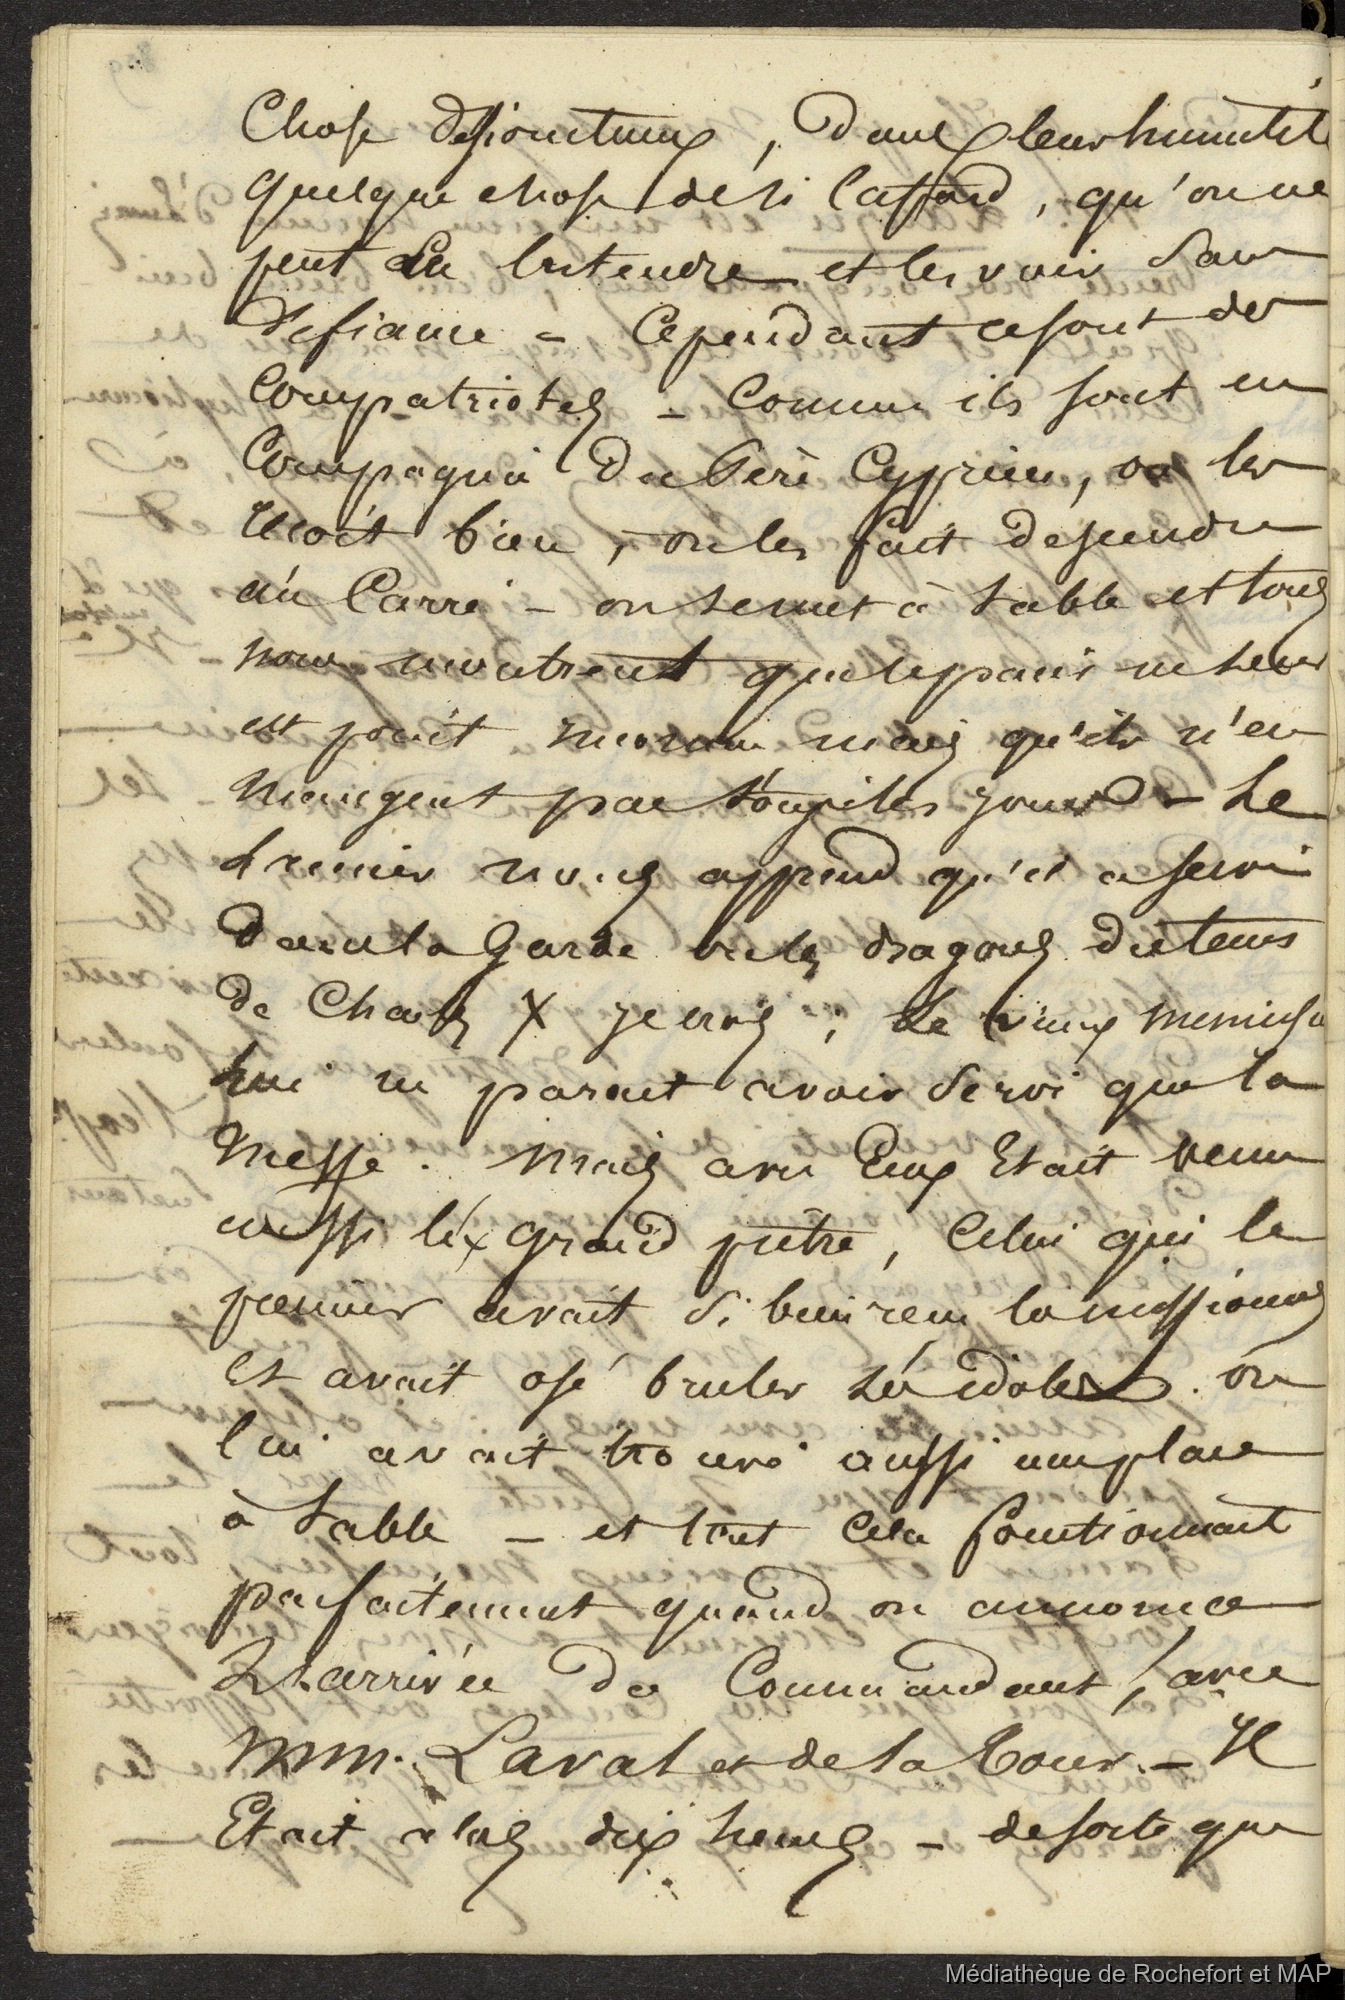 Chose de si onctueux, dans leur humilité
quelque chose de si caffard, qu'on ne
peut les entendre et les voir sans
defiance - Cependant ce sont des
Compatriotes - Comme ils sont en
Compagnie du Père Cyprien, on les
reçoit bien, on les fait descendre
au Carré - on se met à table et tous
nous montrent que le pain ne leur
est point inconnu mais qu'ils n'en
mangent pas tous les jours - Le
premier nous apprend qu'il a servi
dans la Garde ou les dragons du tems
de Charles X je crois ; Le vieux
lui ne parait avoir servi que la
Messe. Mais avec Eux Etait venu
aussi l'ex grand prêtre, Celui qui le
premier avait si bien reçu les missionnaires
Et avait osé bruler ses idoles. on
lui avait trouvé aussi une place
à table - et tout cela fonctionnait
parfaitement quand on annonce
L'arrivée du Commandant, avec
MM. Laval et de la Tour. - Il
Etait alors dix heures - de sorte que
Médiathèque de Rochefort et MAP